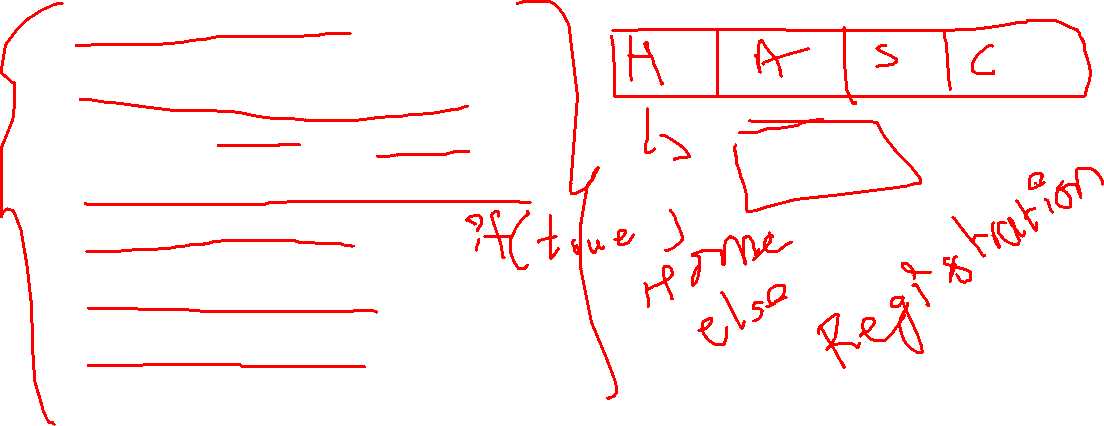 H A S C
if(true)
Home
else
Registration